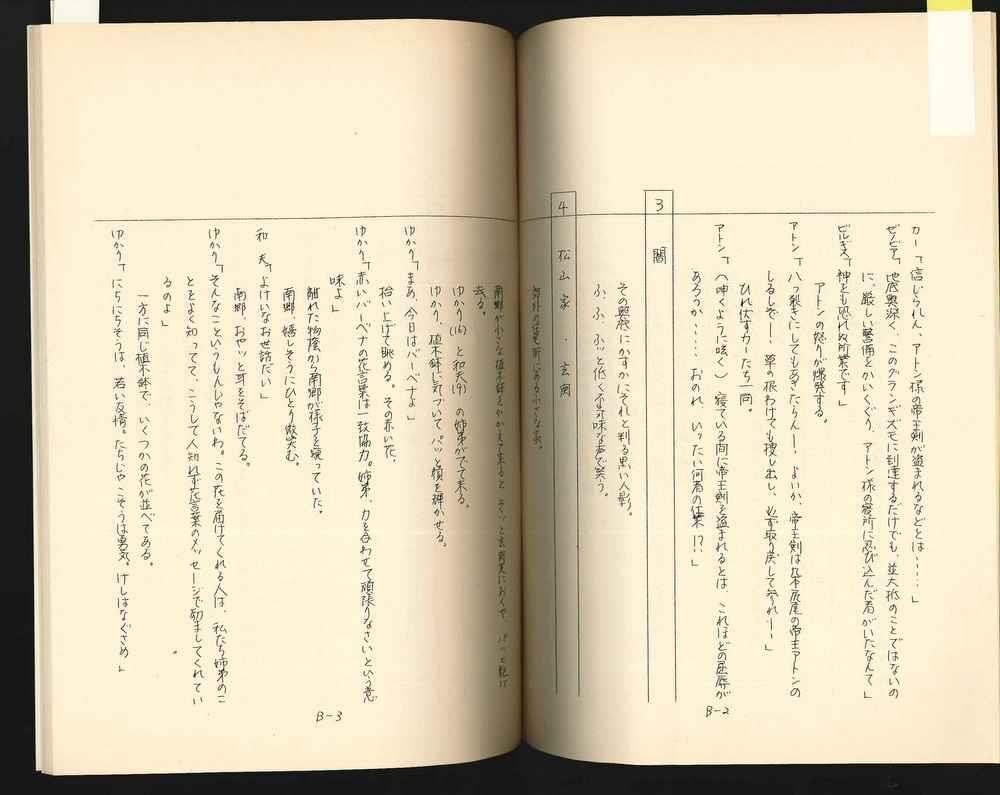 カー「信じられん、アトン様の帝王剣が盗まれるなどとは‥‥‥」
ゼノビア「地底奥深く、このグランギズモに到達するだけでも、並大抵のことではないの
に、厳しい警備をかいくぐり、アトン様の寝所に忍び込んだ者がいたなんて」
ビルギス「神をも恐れぬ所業です」
アトンの怒りが爆発する。
アトン「八つ裂きにしてもあきたらん!! よいか、帝王剣は九本房尾の帝王アトンの
しるしぞ!! 草の根わけても捜し出し、必ず取り戻して参れ!!」
ひれ伏すカーたち一同。
アトン「(呻くように呟く)寝ている間に帝王剣を盗まれるとは、これほどの屈辱が
あろうか‥‥‥おのれ、いったい何者の仕業!?」
3 闇
その奥底にかすかにそれと判る黒い人影。
ふ、ふ、ふッと低く不気味な声で笑う。
B-2
4 松山家・玄関
郊外の住宅街にある小さな家。
南郷が小さな植木鉢をかかえて来ると、そッと玄関先におくや、パッと駈け
去る。
ゆかり(16)と和夫(9)の姉弟がでて来る。
ゆかり、植木鉢に気づいてパッと顔を輝かせる。
ゆかり「まあ、今日はバーベナよ」
拾い上げて眺める。その赤い花。
ゆかり「赤いバーベナの花言葉は一致協力。姉弟、力を合わせて頑張りなさいという意
味よ」
離れた物陰から南郷が様子を窺っていた。
南郷、嬉しそうにひとり微笑む。
和夫「よけいなお世話だい」
南郷、おやッと耳をそばだてる。
ゆかり「そんなこというもんじゃないわ。この花を届けてくれる人は、私たち姉弟のこ
とをよく知ってて、こうして人知れず花言葉のメッセージで励ましてくれてい
るのよ」
一方に同じ植木鉢で、いくつかの花が並べてある。
ゆかり「にちにちそうは、若い友情。たちじゃこそうは勇気。けしはなぐさめ」
B-3